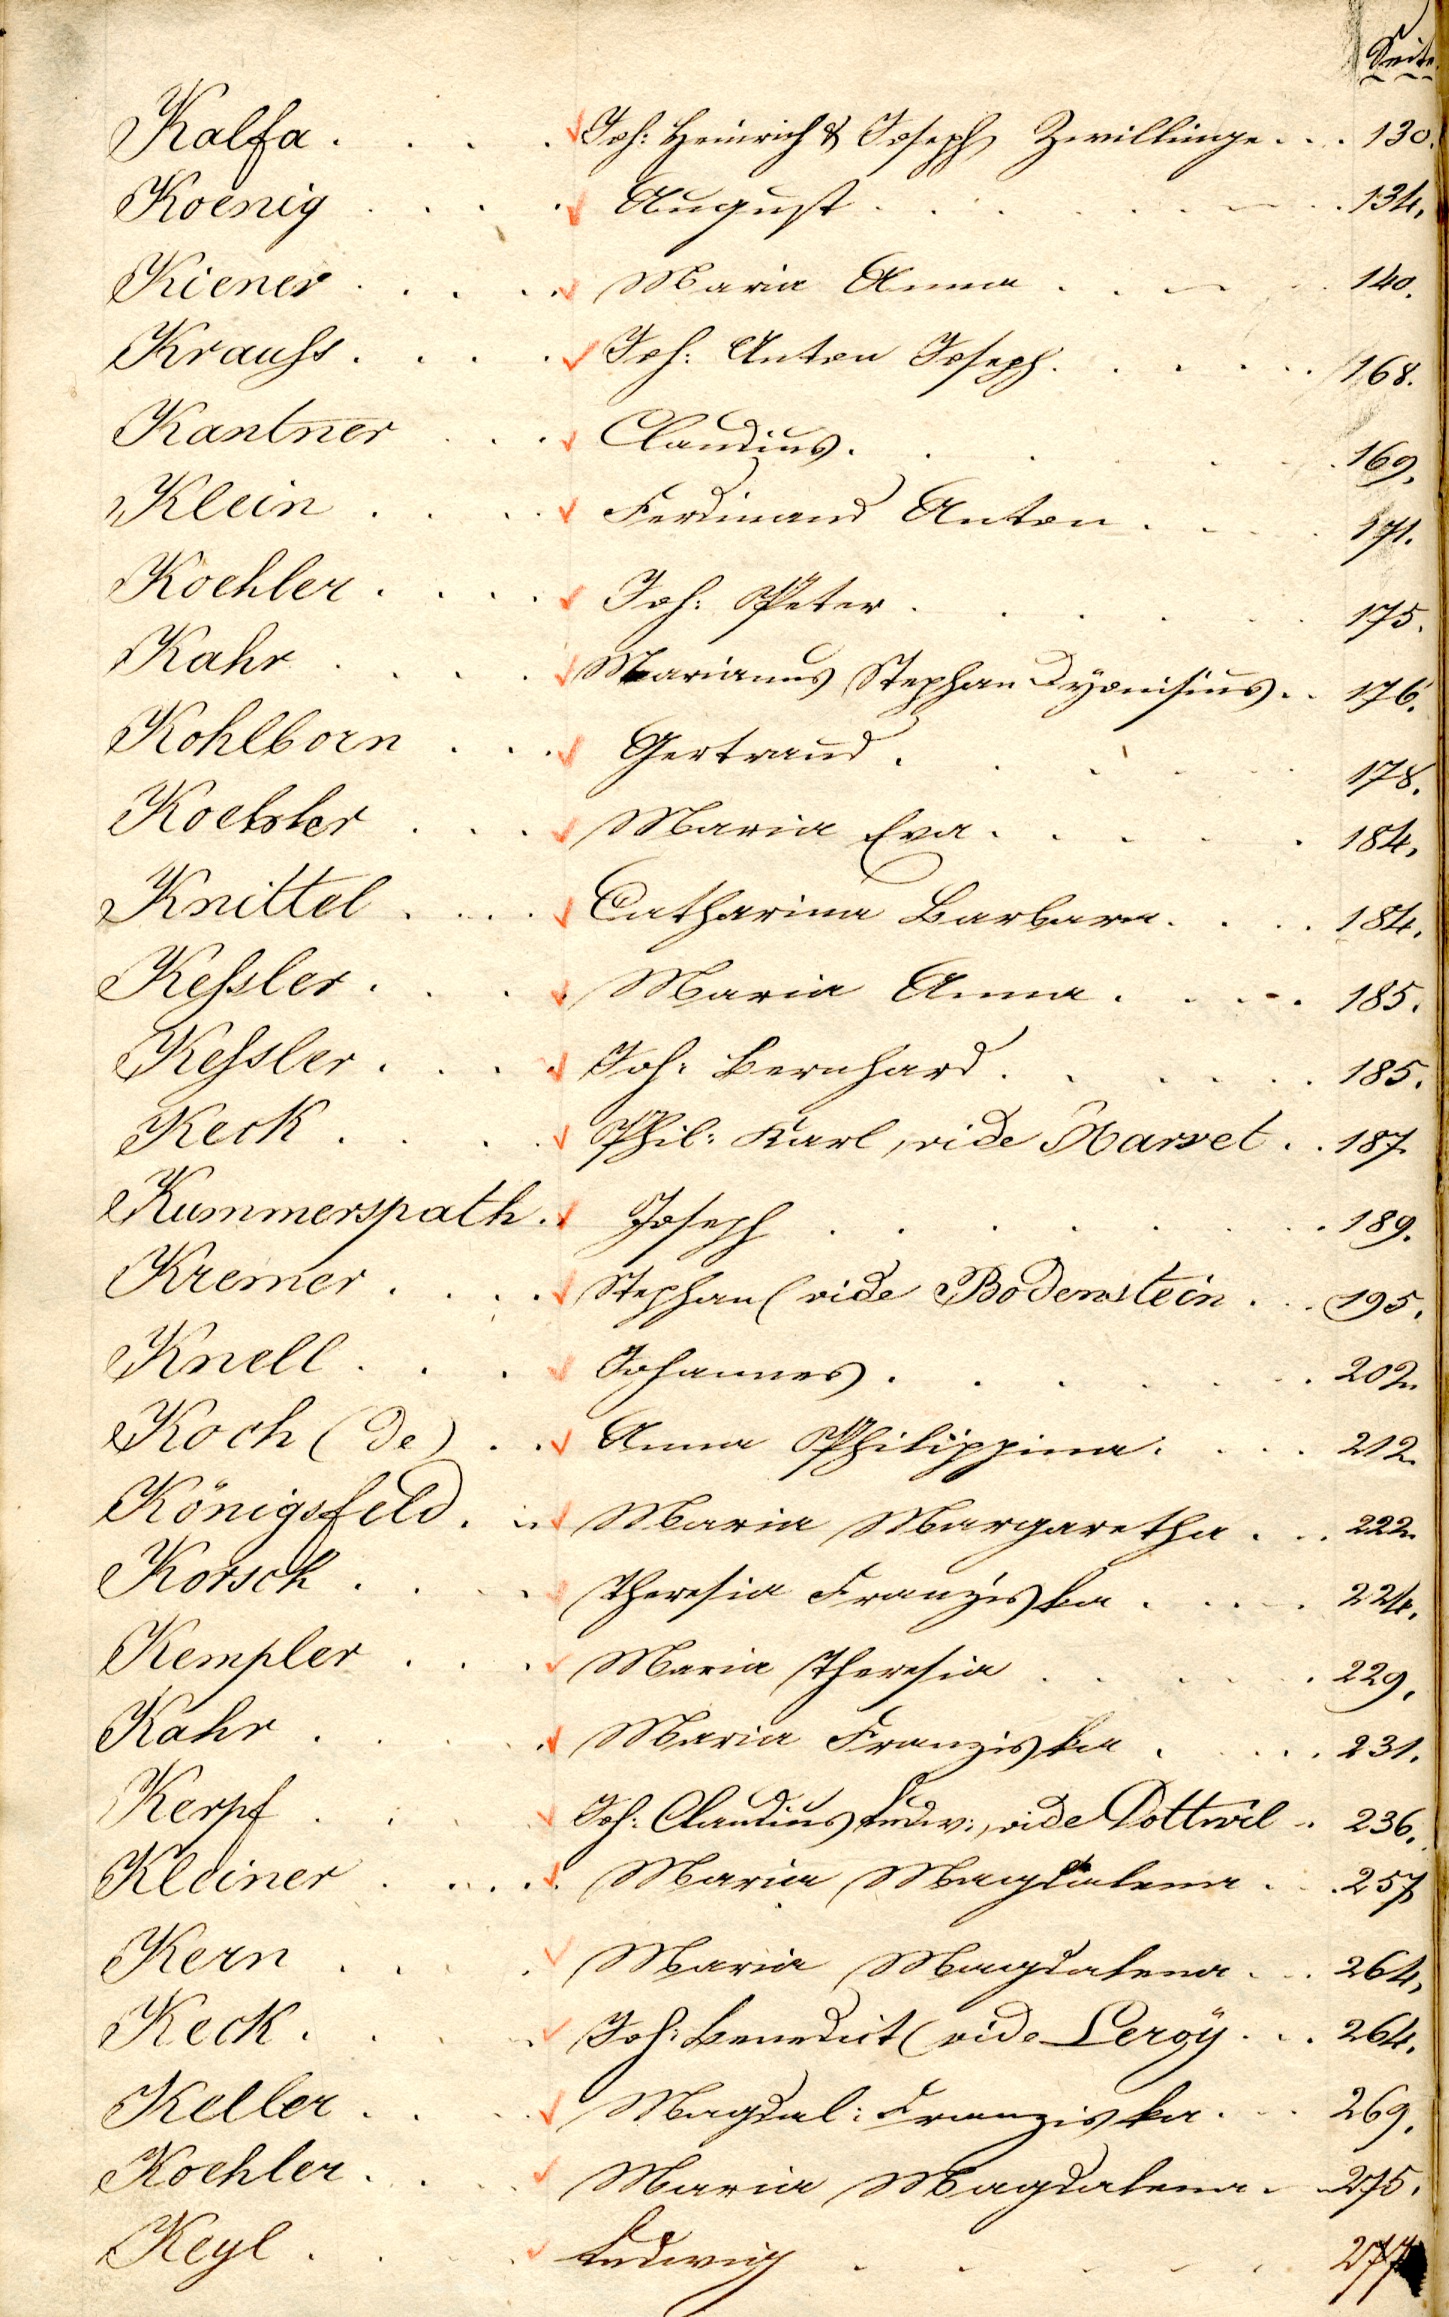 Seite.
Kalfa . . . . Joh: Heinrich & Joseph, Zwillinge . . . 130.
Koenig . . . . August . . . . . . . 134.
Kiener . . . . Maria Anna . . . . 140.
Krauſs . . . . Joh: Anton Joseph . . . . . 168.
Kantner . . . Claudius . . . . . . 169.
Klein . . . . Ferdinand Anton . . . . 171.
Koehler . . . . Joh: Peter . . . . . . 175.
Kahr . . . . Marianus Stephan Dyonisius . . 176.
Kohlborn . . . Gertraud . . . . . 178.
Maria Eva . . . . . 184.
Knittel . . . . Catharina Barbara . . . . 184.
Keſsler . . . . Maria Anna . . . . 185.
Keſsler . . . . Joh: Bernhard . . . . . . 185.
Keck . . . . Phil: Karl, vide Harvet . . 187.
Kummerspath . Joseph . . . . . . . 189.
Kremer . . . . Stephan (vide Bodenstein . . . 195.
Knell . . . Johannes . . . . . . 202.
Koch (de) . . Anna Philippina . . . . 212.
Königsfeld . . . Maria Margaretha . . . 222.
Korsch . . . . Theresia Franziska . . . . 224.
Kempler . . . Maria Theresia . . . . . 229.
Kahr . . . . Maria Franziska . . . . 231.
Kerpf . . . Joh: Claudius Ludw:, vide Dottwil . 236.
Kleiner . . . . . Maria Magdalena . . . 257
Kern . . . . Maria Magdalena . . . 264.
Keck . . . . Joh: Benedict (vide Leroÿ . . . 264.
Keller . . . . Magdal: Franziska . . . 269.
Koehler . . . . Maria Magdalena . . 275.
Keyl . . . . Ludwig . . . . . 277